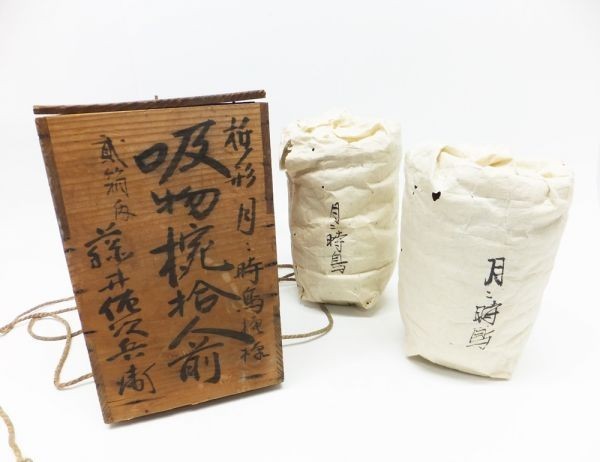 形月ニ時鳥模様
吸物椀拾人前
貳箱内
藤井佐次兵衛
月ニ時鳥
月ニ時鳥